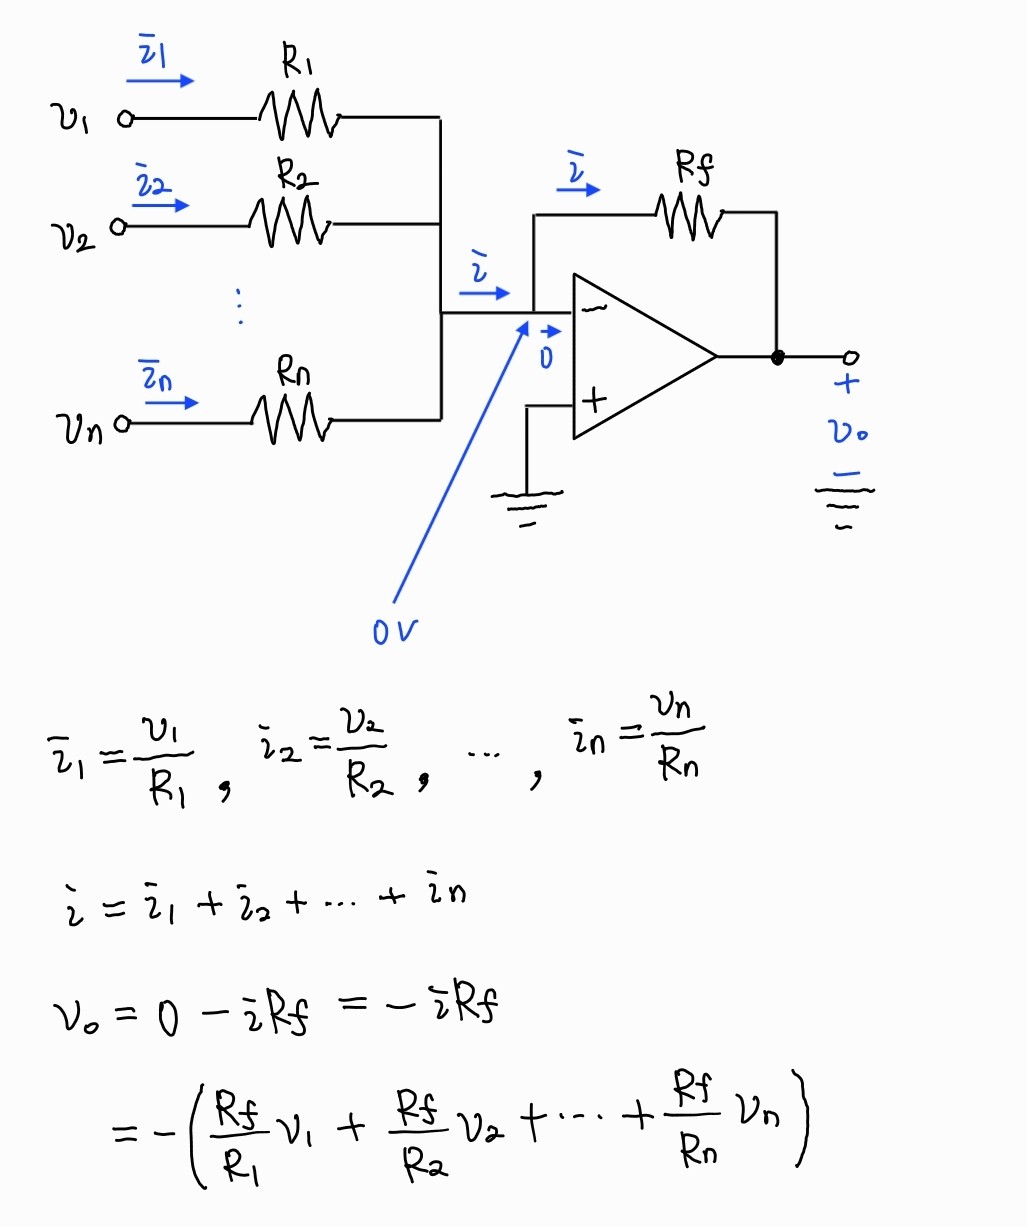 i1 R1
v1
i2 R2
v2
i Rf
⋮ i
−
0
in Rn
+
vn
+
vo
−
0V
i1 = v1/R1 , i2 = v2/R2 , ... , in = vn/Rn
i = i1 + i2 + ... + in
vo = 0 − iRf = − iRf
= − (Rf/R1 v1 + Rf/R2 v2 + ... + Rf/Rn vn)